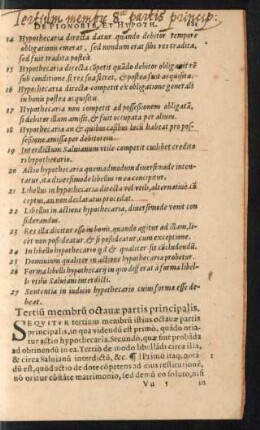 Tertium membrũ 8. partis princip:
DE PIGNORIB. ET HYPOTH. 681
14 Hypothecaria directa datur quando debitor tempore
obligationis emerat, sed nondum erat sibi res tradita,
sed fuit tradita postea.
15 Hypothecaria directa cõpetit quãdo debitor obligauit rẽ
sub conditione si res sua fieret, & postea fuit acquisita.
16 Hypothecaria directa competit ex obligatione generali
in bonis postea acquisitis.
17 Hypothecaria non competit ad possessionem obligatã,
si debitor illam amisit, & fuit occupata per alium.
18 Hypothecaria an & quibus casibus locũ habeat pro pos-
sessione amissa per debitorem.
19 Interdictum Saluianum vtile competit cuilibet credito
ri hypothecario.
20 Actio hypothecaria quemadmodum diuersimodè inten-
tatur, ita diuersimodè libellus in ea concipitur.
21 Libellus in hypothecaria directa vel vtili, alternatiuè cũ
ceptus, an non declaratus procedat.
22 Libellus in actione hypothecaria, diuersimodè venit con
siderandus.
23 Res illa dicitur esse in bonis, quando agitur ad illam, li-
cet non possideatur, & si possideatur, cum exceptione.
24 In libello hypothecario qđ & qualiter sit cõcludendũ.
25 Dominium qualiter in actione hypothecaria probetur.
26 Forma libelli hypothecarij in quo differat à forma libel-
li vtilis Saluiani interdicti.
27 Sententia in iudicio hypothecario cuius forma esse de-
beat.
Tertiũ membrũ octauæ partis principalis.
SEQVITVR tertium membrũ istius octauæ partis
principalis, in qua videndũ est primò, quãdo ori-
atur actio hypothecaria. Secundo, quæ sint probãda
ad obtinendũ in ea. Tertiò de modo libellãdi circa illã,
& circa Saluianũ interdictũ, &c. ¶ Primò itaq; notã-
dũ est, quòd actio de dote cõpetens ad eius restitutionẽ
nõ oritur cõstãte matrimonio, sed demũ eo soluto, nisi
Vu 5 in